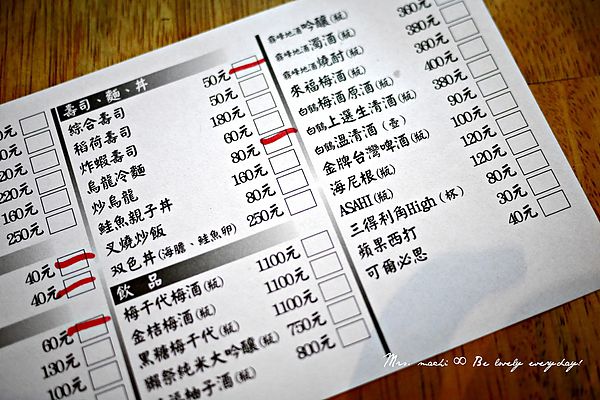 220元
160元
250元
40元
40元
60元
130元
100元
壽司、麵、丼
綜合壽司 50元
稻荷壽司 50元
炸蝦壽司 180元
烏龍冷麵 60元
炒烏龍 80元
鮭魚親子丼 160元
叉燒炒飯 80元
双色丼(海膽、鮭魚卵) 250元
飲品
梅千代梅酒(瓶) 1100元
金桔梅酒(瓶) 1100元
黑糖梅千代(瓶) 1100元
獺祭純米大吟釀(瓶) 750元
柚子酒(瓶) 800元
霧峰地酒吟釀(瓶) 360元
霧峰地酒濁酒(瓶) 380元
霧峰地酒燒酎(瓶) 360元
來福梅酒(瓶) 380元
白鶴梅酒原酒(瓶) 400元
白鶴上選生清酒(瓶) 380元
白鶴溫清酒(壺) 90元
金牌台灣啤酒(瓶) 100元
海尼根(瓶) 120元
ASAHI(瓶) 120元
三得利角High(杯) 80元
蘋果西打 30元
可爾必思 40元
Mrs. machi ∞ Be lovely everydays!